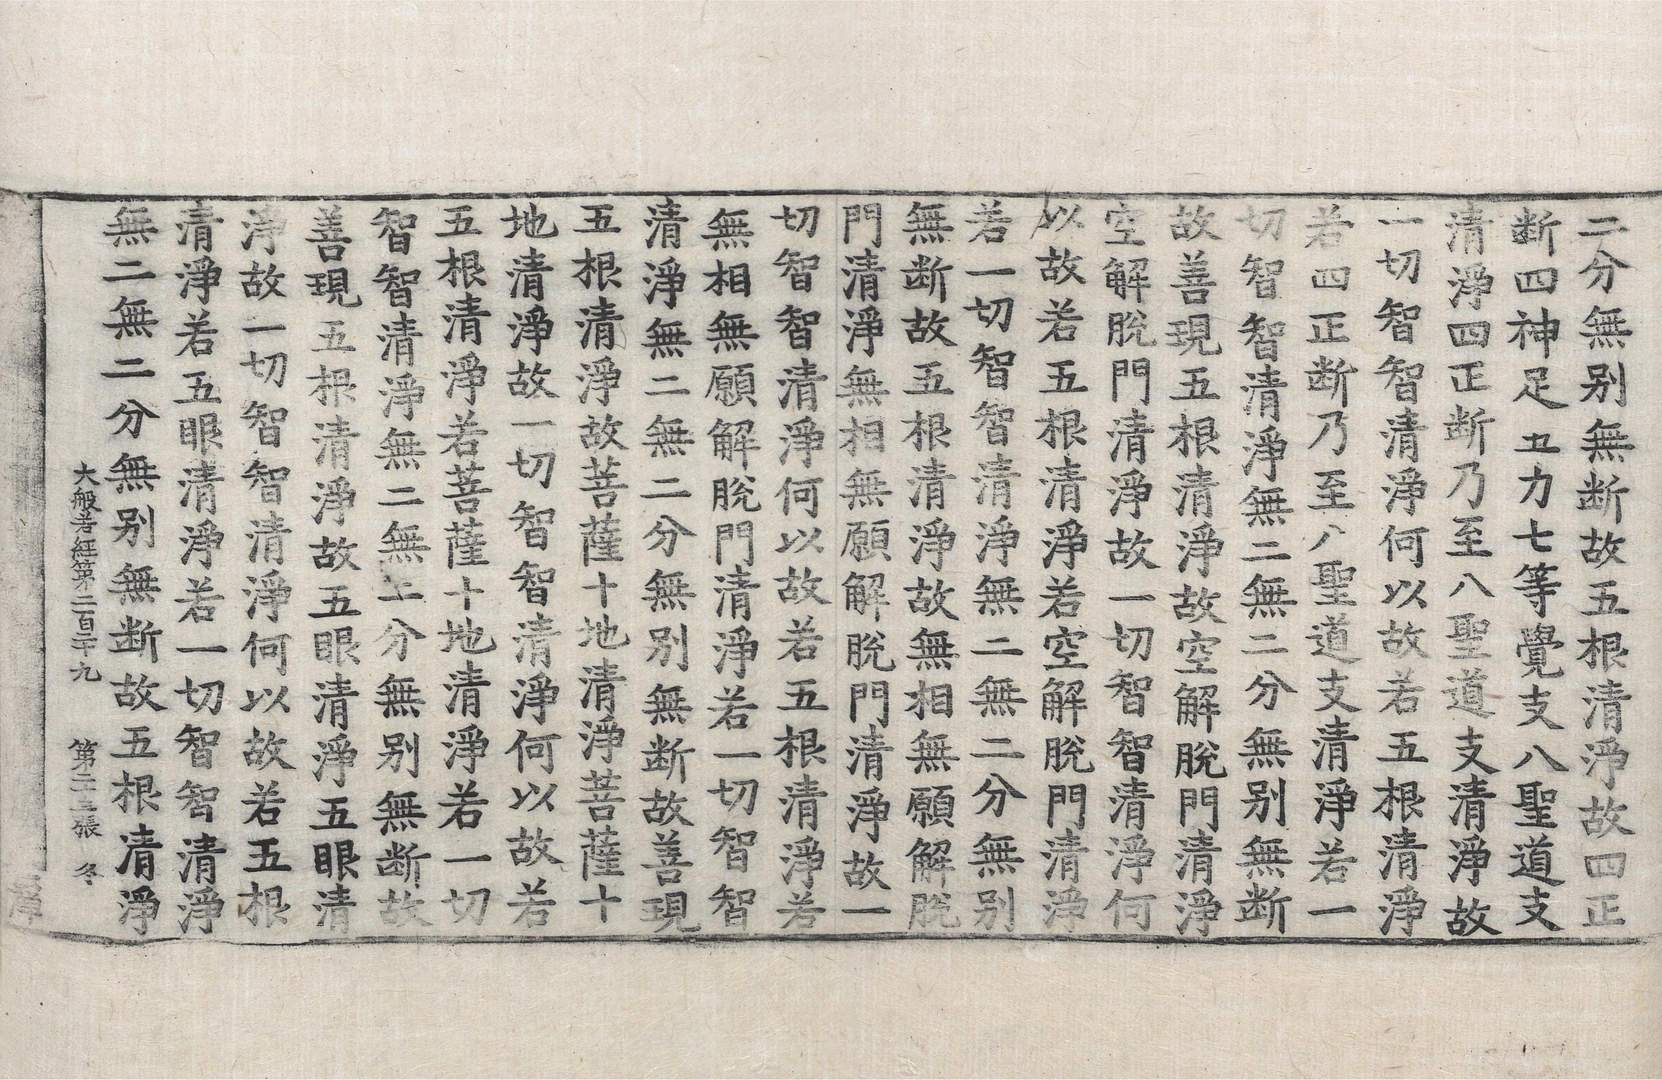 二分無別無断故五根清淨故四正
断四神足五力七等覺支八聖道支
清淨四正断乃至八聖道支清淨故
一切智智清淨何以故若五根清淨
若四正断乃至八聖道支清淨若一
切智智清淨無二無二分無別無断
故善現五根清淨故空解脫門清淨
空解脫門清淨故一切智智清淨何
以故若五根清淨若空解脫門清淨
若一切智智清淨無二無二分無別
無断故五根清淨故無相無願解脫
門清淨無相無願解脫門清淨故一
切智智清淨何以故若五根清淨若
無相無願解脫門清淨若一切智智
清淨無二無二分無別無断故善現
五根清淨故菩薩十地清淨菩薩十
地清淨故一切智智清淨何以故若
五根清淨若菩薩十地清淨若一切
智智清淨無二無二分無別無断故
善現五根清淨故五眼清淨五眼清
淨故一切智智清淨何以故若五根
清淨若五眼清淨若一切智智清淨
無二無二分無別無断故五根清淨
大般若經第二百二十九 第二十三張 冬